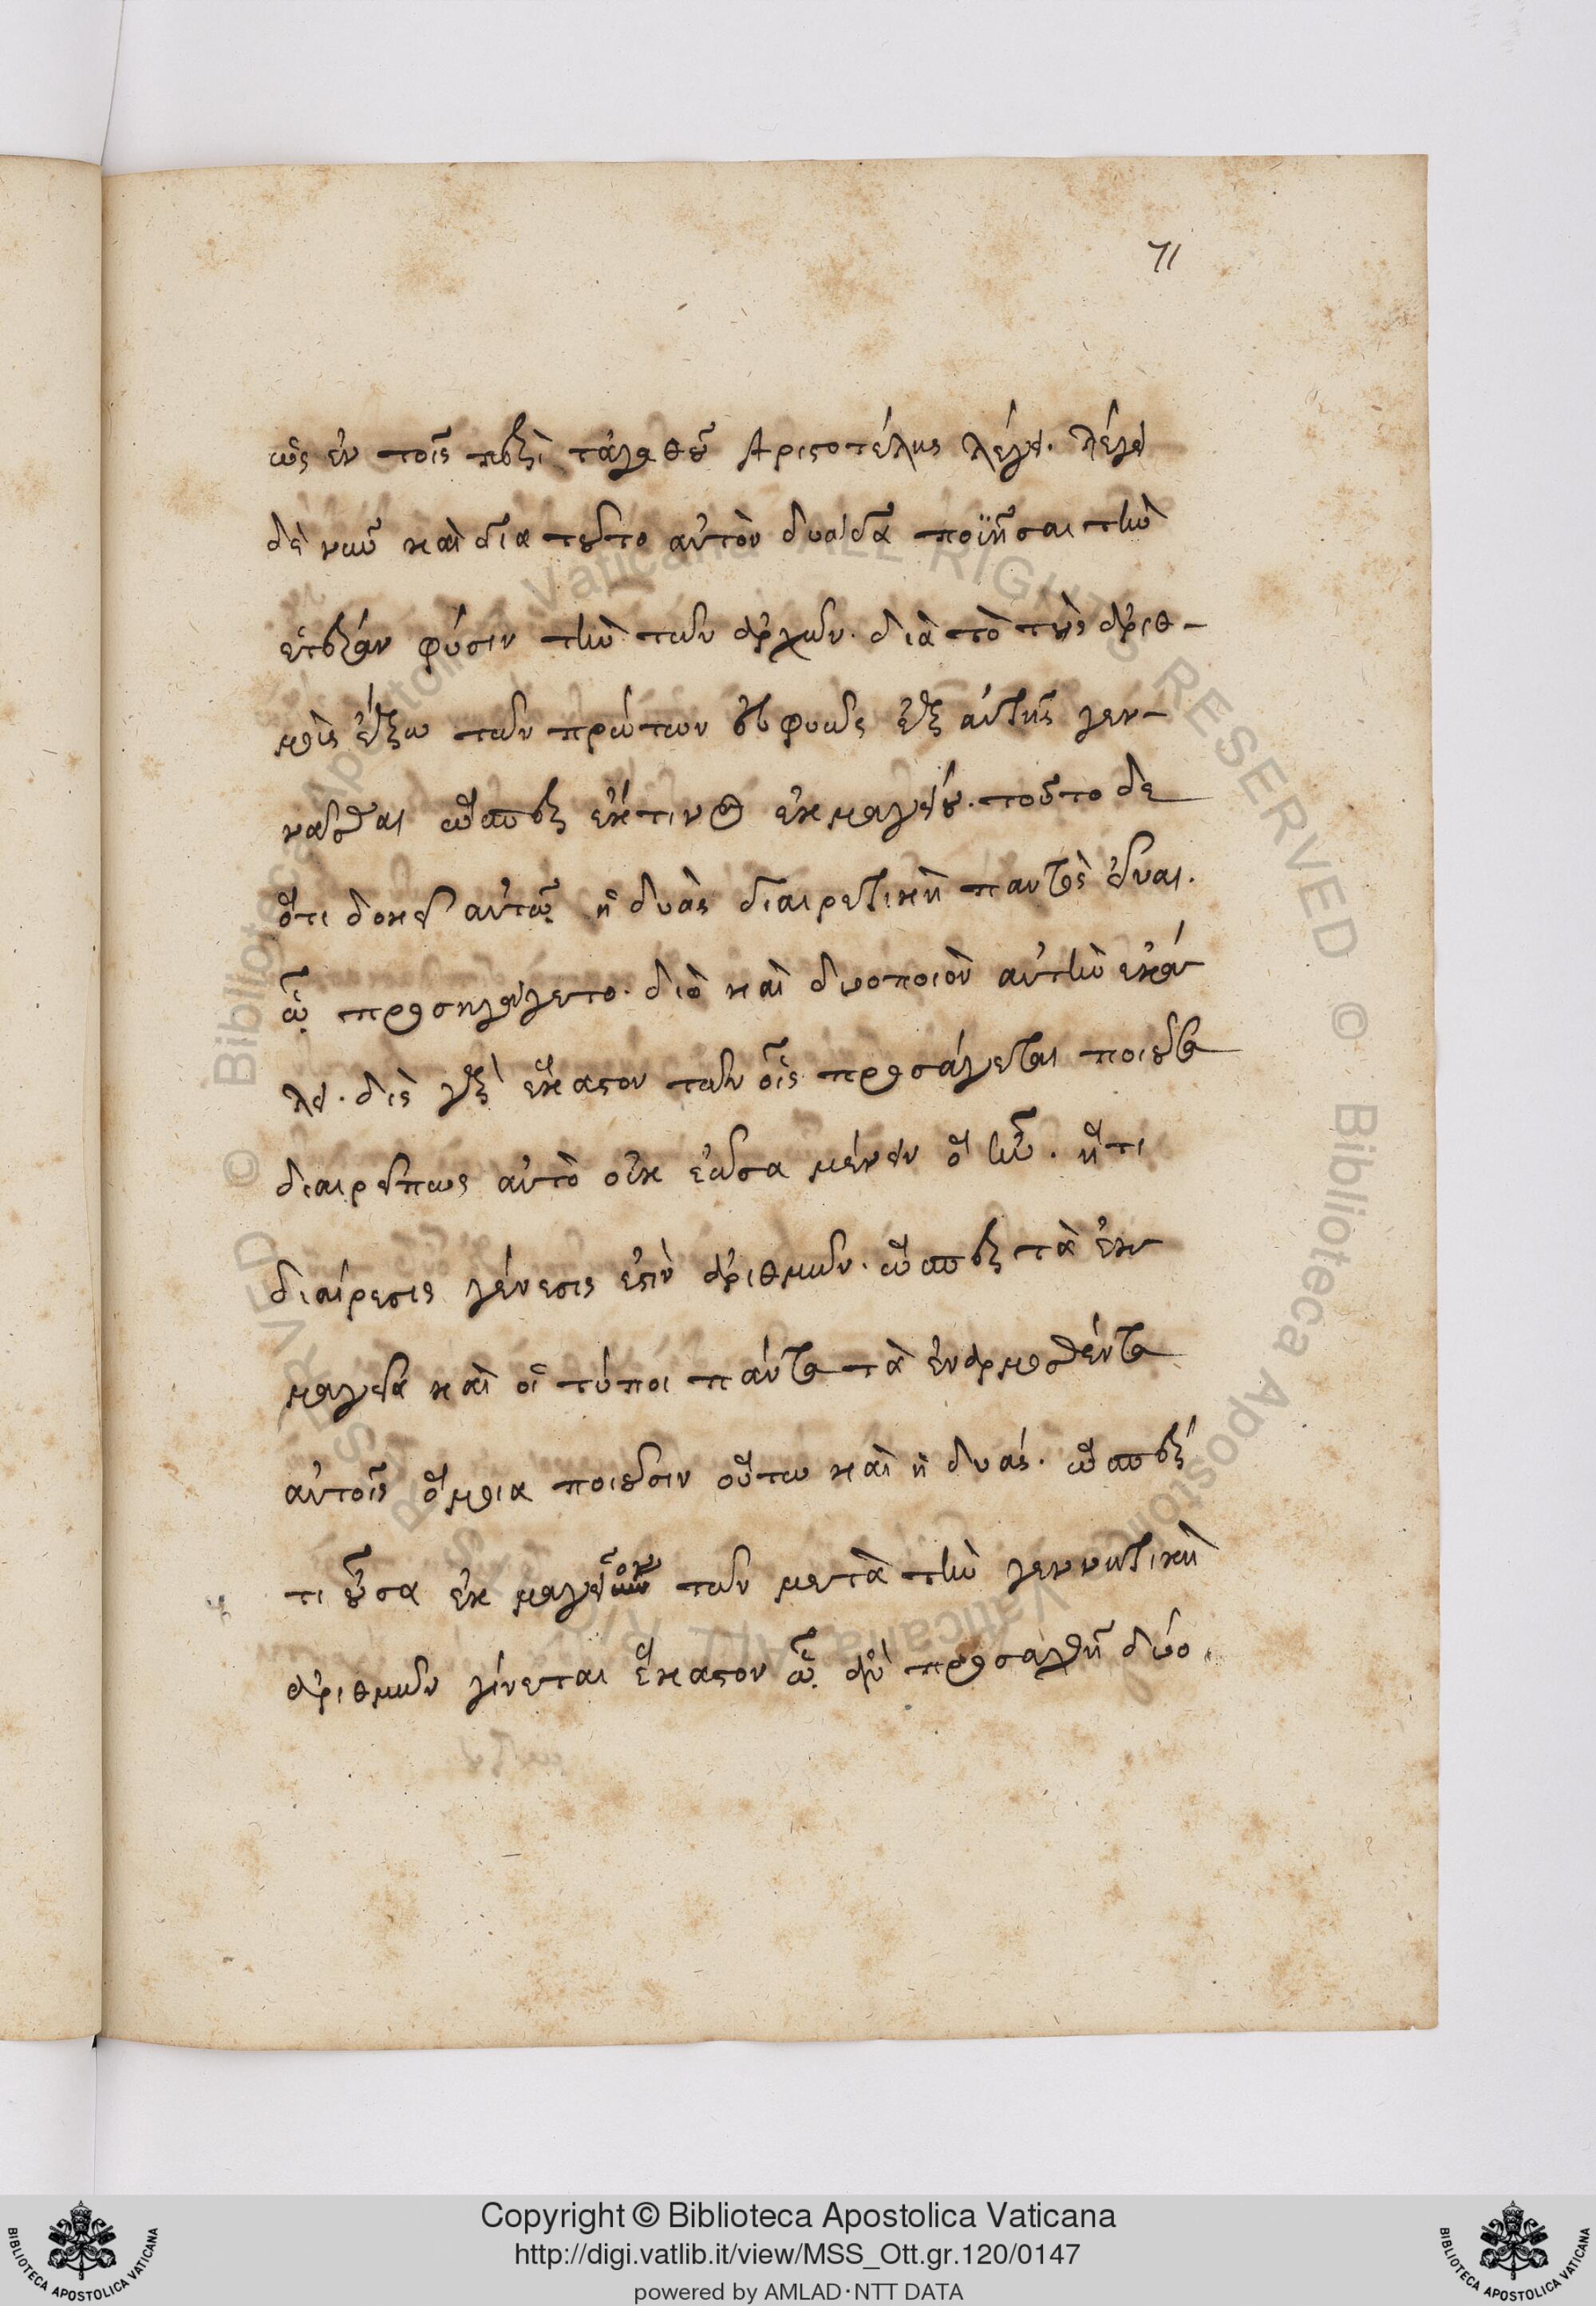 71
ὡς ἐν τοῖς περὶ τἀγαθοῦ Ἀριστοτέλης λέγει. λέγει
δὲ νῦν καὶ διὰ τοῦτο αὐτὸν δυάδα ποιῆσαι τὴν
ἑτέραν φύσιν τὴν τῶν ἀρχῶν. διὰ τὸ τοὺς ἀριθ-
μοὺς ἔξω τῶν πρώτων εὐφυῶς ἐξ αὐτῆς γεν-
νᾶσθαι ὥσπερ ἔκ τινος ἐκμαγείου. τοῦτο δε
ὅτι δοκεῖ αὐτῷ ἡ δυὰς διαιρετικὴ παντὸς εἶναι.
ᾧ προσηγάγετο. διὸ καὶ δυοποιὸν αὐτὴν ἐκά
λει. δὶς γὰρ ἕκαστον τῶν οἷς προσάγεται ποιοῦσα
διαιρεῖ πως αὐτὸ οὐκ ἐῶσα μένειν ὃ ἦν. ἥτι
διαίρεσις γένεσις ἐστὶν ἀριθμῶν. ὥσπερ τὰ ἐκ
μαγεῖα καὶ οἱ τύποι πάντα τὰ ἐναρμοσθέντα
αὐτοῖς ὅμοια ποιοῦσιν οὕτω καὶ ἡ δυάς. ὥσπερ
τι οὖσα ἐκμαγεῖον τῶν μετὰ τὴν γεννητικὴ
ἀριθμῶν γίνεται ἕκαστον ᾧ ἂν προσαχθῇ δύο.
Copyright © Biblioteca Apostolica Vaticana
http://digi.vatlib.it/view/MSS_Ott.gr.120/0147
powered by AMLAD·NTT DATA